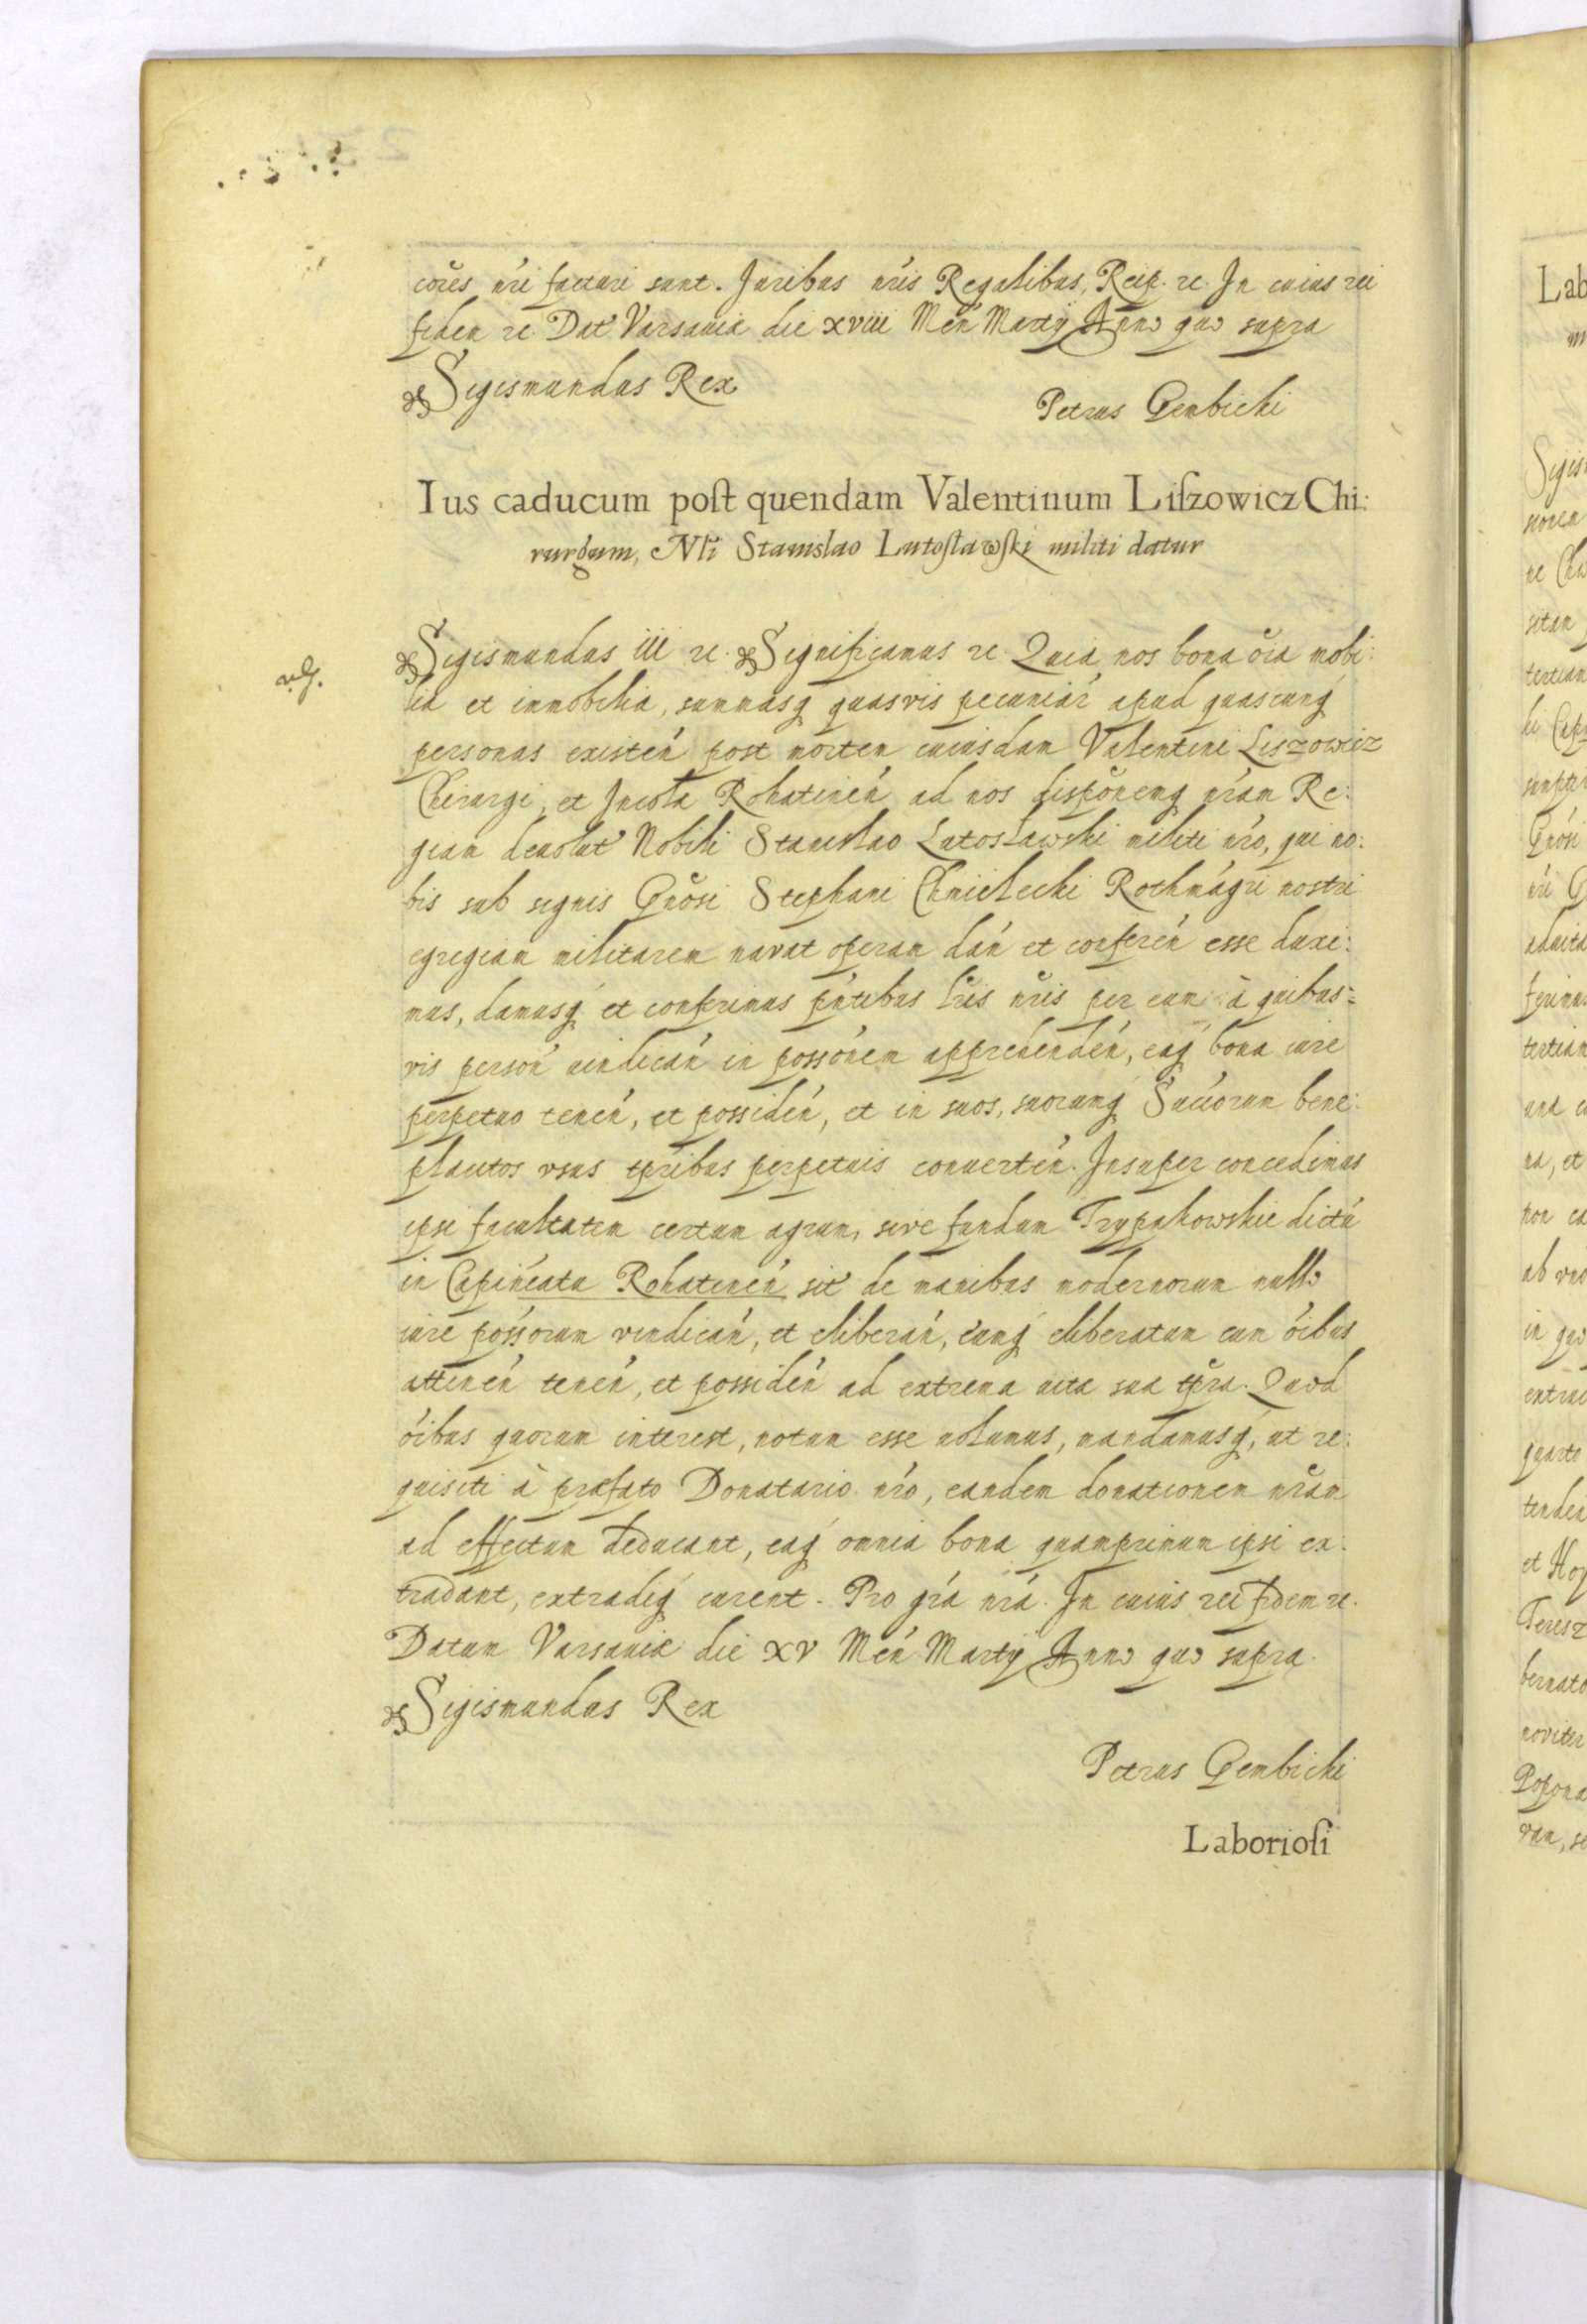 cores nri facturi sunt. Juribus nris Regalibus, Reip. rc. In cuius rei
fidem rc Dat Varsaviæ die xviii Men Martij Anno quo supra
Sigismundus Rex
Petrus Gembicki
Ius caducum post quendam Valentinum Liszowicz Chi:
rurgum, Nli Stanislao Lutosławski militi datur
Sigismundus iii rc. Significamus rc. Quia nos bona oia mobi:
lia et immobilia, summasq quasvis pecuniar apud quascunq
personas existen post mortem cuiusdam Valentini Liszowicz
Chirurgi, et Incolæ Rohatinen ad nos disponemq nram Re:
giam devolut Nobili Stanislao Lutosławski militi nro, qui no:
bis sub signis Gnosi Stephani Chmielecki Rothmagri nostri
egregiam militarem navat operam dan et conferen esse duxi:
mus, damusq et conferimus pntibus lris nris per eum à quibus=
vis person uindican in possonem apprehenden, eaq bona iure
perpetuo tenen, et possiden, et in suos, suorumq Succorum bene:
placitos vsus tpribus perpetuis conuerten. Insuper concedimus
ipsi facultatem certum agrum, sive fundum Trypakowskie dictu
in Capineatu Rohatinen sit de manibus modernorum nullo
iure possorum vendican, et eliberan, eumq eliberatum cum oibus
attinen tenen, et possiden ad extrema uitæ suæ tpra. Quod
oibus quorum interest, notum esse uolumus, mandamusq, ut re:
quisiti à præfato Donatario nro, eandem donationem nram
ad effectum deducant, eaq omnia bona quamprimum ipsi ex:
tradant, extradiq curent. Pro gra nra. In cuius rei fidem rc.
Datum Varsaviæ die xv Men Martij Anno quo supra.
Sigismundus Rex
Petrus Gembicki
Laboriosi